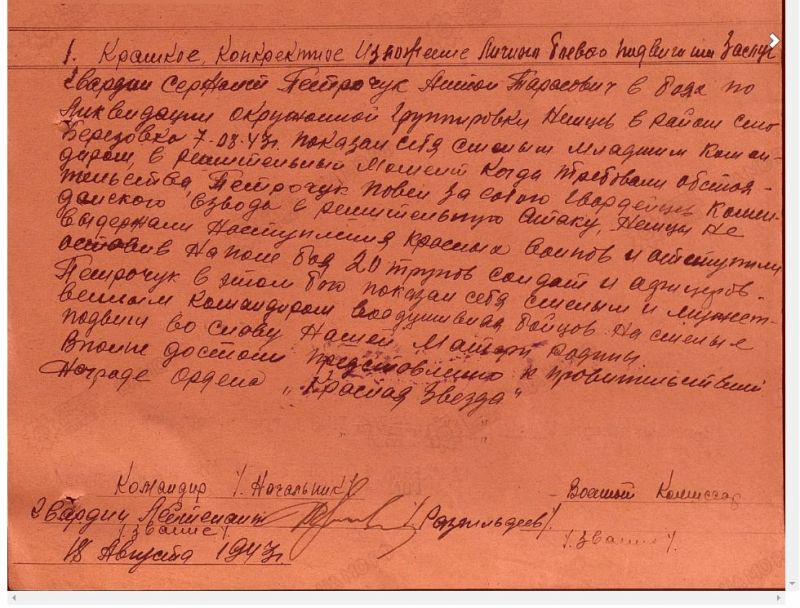 1. Краткое, Конкректное Изложение Личных боевого подвига или Заслуг
Гвардии Сержант Петрочук Антон Тарасович в боях по
Ликвидации окруженной Группировки Немцев в районе село
Березовка 7-08-43г. показал себя смелым младшим Коман-
диром, в решительный Момент когда требовали обстоя-
тельства Петрочук повел за собою Гвардейцев Комен-
данского Взвода в решительную Атаку, Немцы Не
выдержали Наступления Красных Воинов и отступили
оставив На поле боя 20 трупов солдат и афицеров.
Петрочук в этом бою показал себя смелым и мужест-
венным Командиром воодушивляя бойцов На смелые
подвиги во славу Нашей Матери Родины
Вполне достоин представлению к правительственной
Награде Ордена „Красная Звезда"
Командир /. Начальник/
Военный Комиссар
Гвардии Лейтенант
/званые/.
/званые/.
18 Августа 1943г.